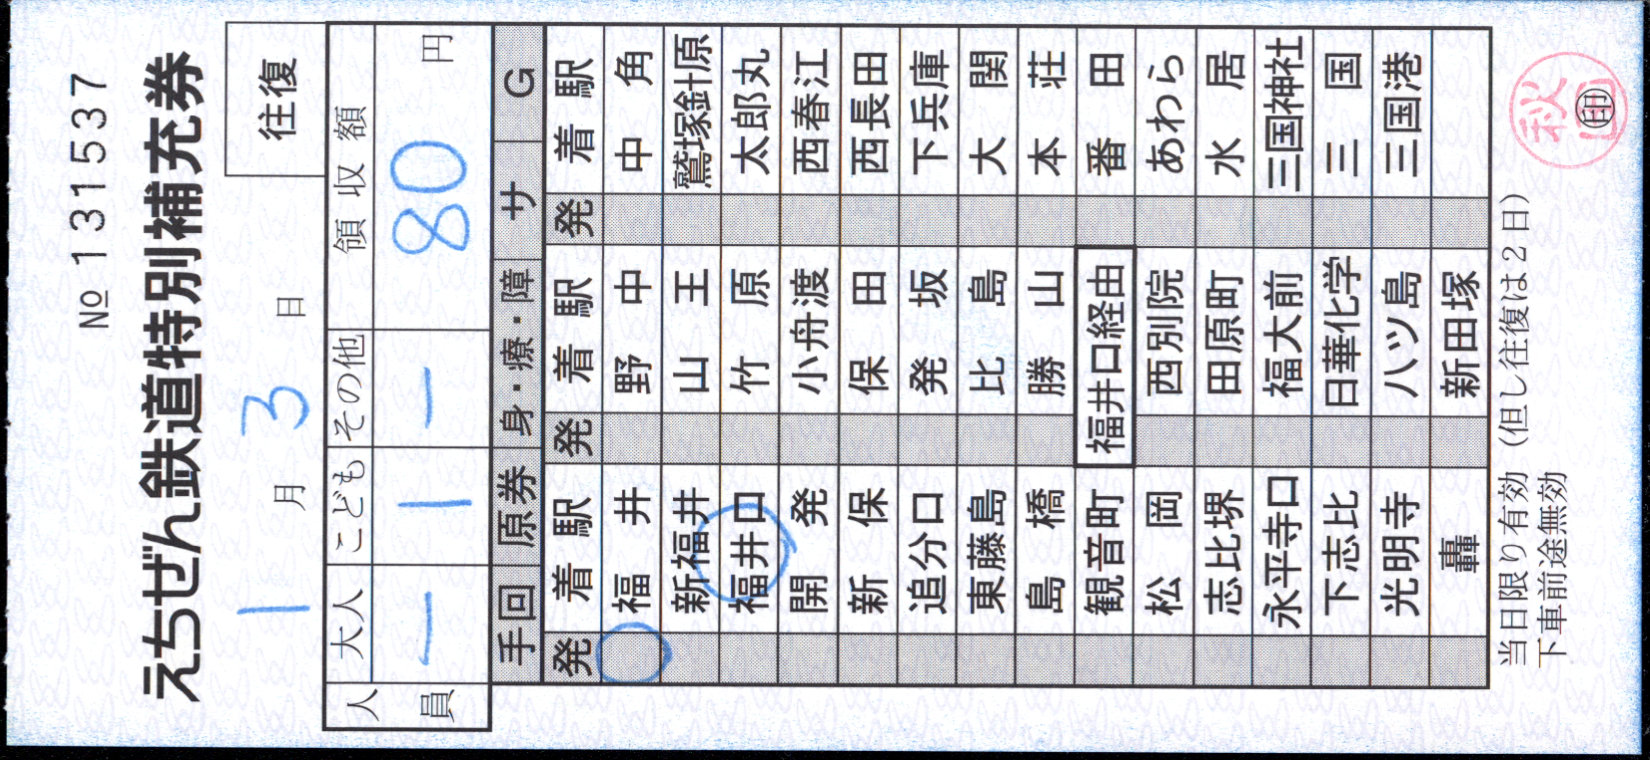 № 131537
えちぜん鉄道特別補充券
1月 3日 往復
人員 大人 こども その他 領収額
— 1 — 80 円
手回 原券 身・療・障 サ G
発 着駅 発 着駅 発 着駅
福井 野中 中角
新福井 山王 鷲塚針原
福井口 竹原 太郎丸
開発 小舟渡 西春江
新保 保田 西長田
追分口 発坂 下兵庫
東藤島 比島 大関
島橋 勝山 本荘
観音町 福井口経由 番田
松岡 西別院 あわら
志比堺 田原町 水居
永平寺口 福大前 三国神社
下志比 日華化学 三国
光明寺 八ツ島 三国港
轟 新田塚
当日限り有効（但し往復は2日）
下車前途無効
印